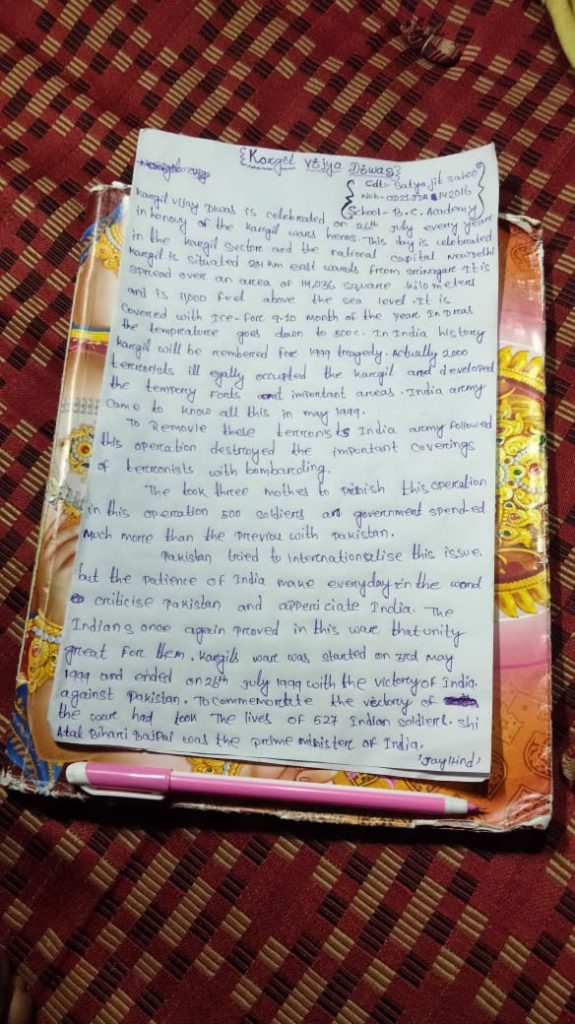 {Kargil vijya Diwas}
Cdt:- Satyajit Sahoo
School - B.C. Academy
Kargil vijay Diwas is celebrated on 26th July every years
in honouy of the kargil wars heroes. This day is celebrated
in the kargil sectore and the national capital NewDelhi
Kargil is situated 201 Km east wards from srinagar. It is
spread over an area of 14,036 square kilo meters
and is 11,000 feel above the sea level. It is
Covered with Ice-fore 9-10 month of the year. In Dras
the temprature goes down to 500c. In India history
Kargil will be rembered for 1999 tragedy. Actually 2000
terrorists ill egally occupied the kargil and developed
the tempory fonts at important areas. India army
Came to know all this in may 1999.
To Remove these terrorists India army followed
this operation destroyed the important coverings
of terrorists with bombarding.
The took three mothes to this operation
in this operation 500 soldiers and government spended
much more than the previou with pakistan.
Pakistan tried to Internationalise this issue.
but the patience of India make everyday in the word
criticise pakistan and appericiate India. The
Indians once again proved in this ware that unity
great for them. Kargils ware was started on 3rd may
1999 and ended on 26th July 1999 with the victory of India.
against pakistan. To commemortate the victory of
the ware had took The lives of 527 Indian soldiers. Shi
Atal Bihari Bajpai was the prime minister of India.
'Jay Hind'